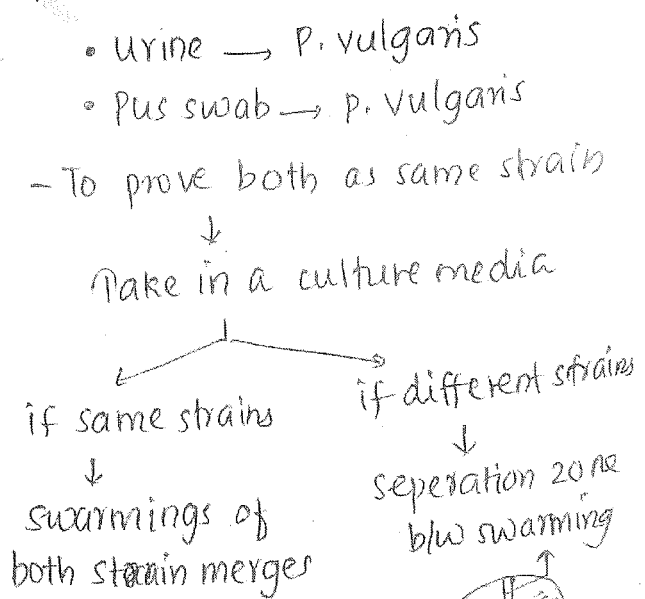 • urine → P. vulgaris
• Pus swab → P. vulgaris
- To prove both as same strain
↓
Take in a culture media
if same strains
↓
swarmings of
both strain merges
if different strains
↓
seperation zone
b/w swarming